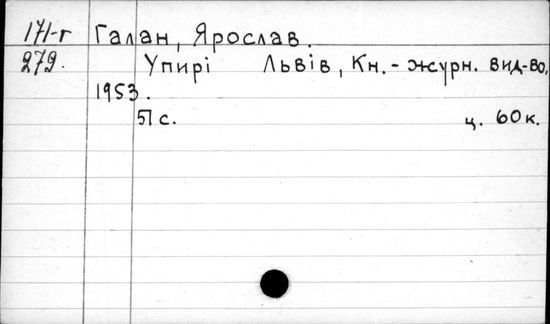 171-г Галан, Ярослав.
279. Упирі Львів, Кн.-журн. вид-во,
1953.
51 с. ц. 60к.